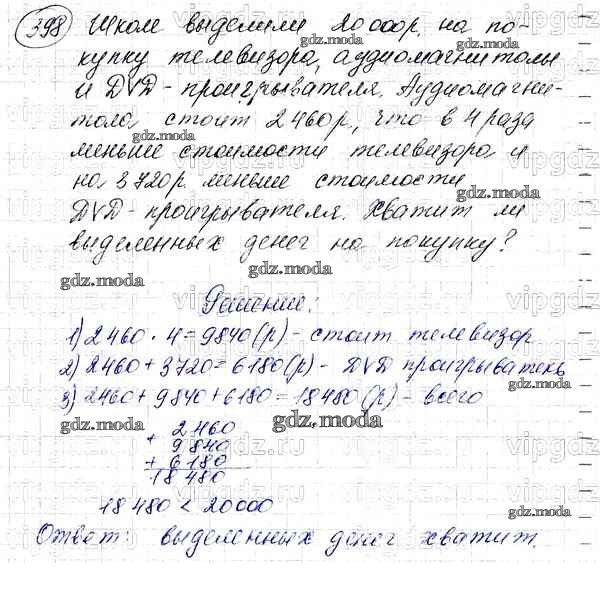 398 Школе выделили 20 000р. на по-
купку телевизора, аудиомагнитолы
и DVD-проигрывателя. Аудиомагни-
тола стоит 2 460р, что в 4 раза
меньше стоимости телевизора и
на 3 720р. меньше стоимости
DVD-проигрывателя. Хватит ли
выделенных денег на покупку?
Решение:
1) 2 460 · 4 = 9840 (р) - стоит телевизор
2) 2460 + 3720 = 6180 (р) - DVD проигрыватель
3) 2460 + 9840 + 6180 = 18480 (р) - всего
2 460
+ 9 840
+ 6 180
18 480
18 480 < 20 000
Ответ: выделенных денег хватит.
gdz.moda
vipgdz.ru